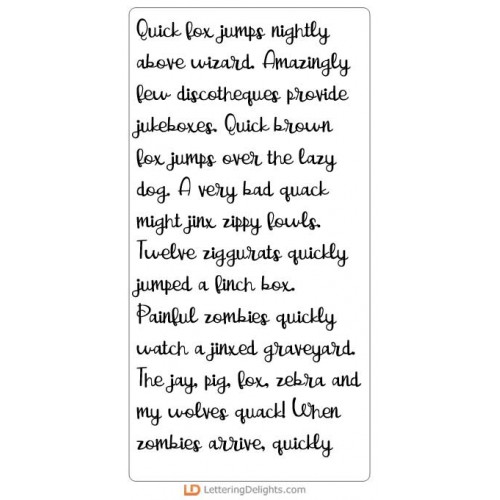 Quick fox jumps nightly
above wizard. Amazingly
few discotheques provide
jukeboxes. Quick brown
fox jumps over the lazy
dog. A very bad quack
might jinx zippy fowls.
Twelve ziggurats quickly
jumped a finch box.
Painful zombies quickly
watch a jinxed graveyard.
The jay, pig, fox, zebra and
my wolves quack! When
zombies arrive, quickly
LD LetteringDelights.com